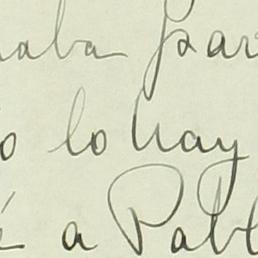 raba par
o lo hay
é a Pabl